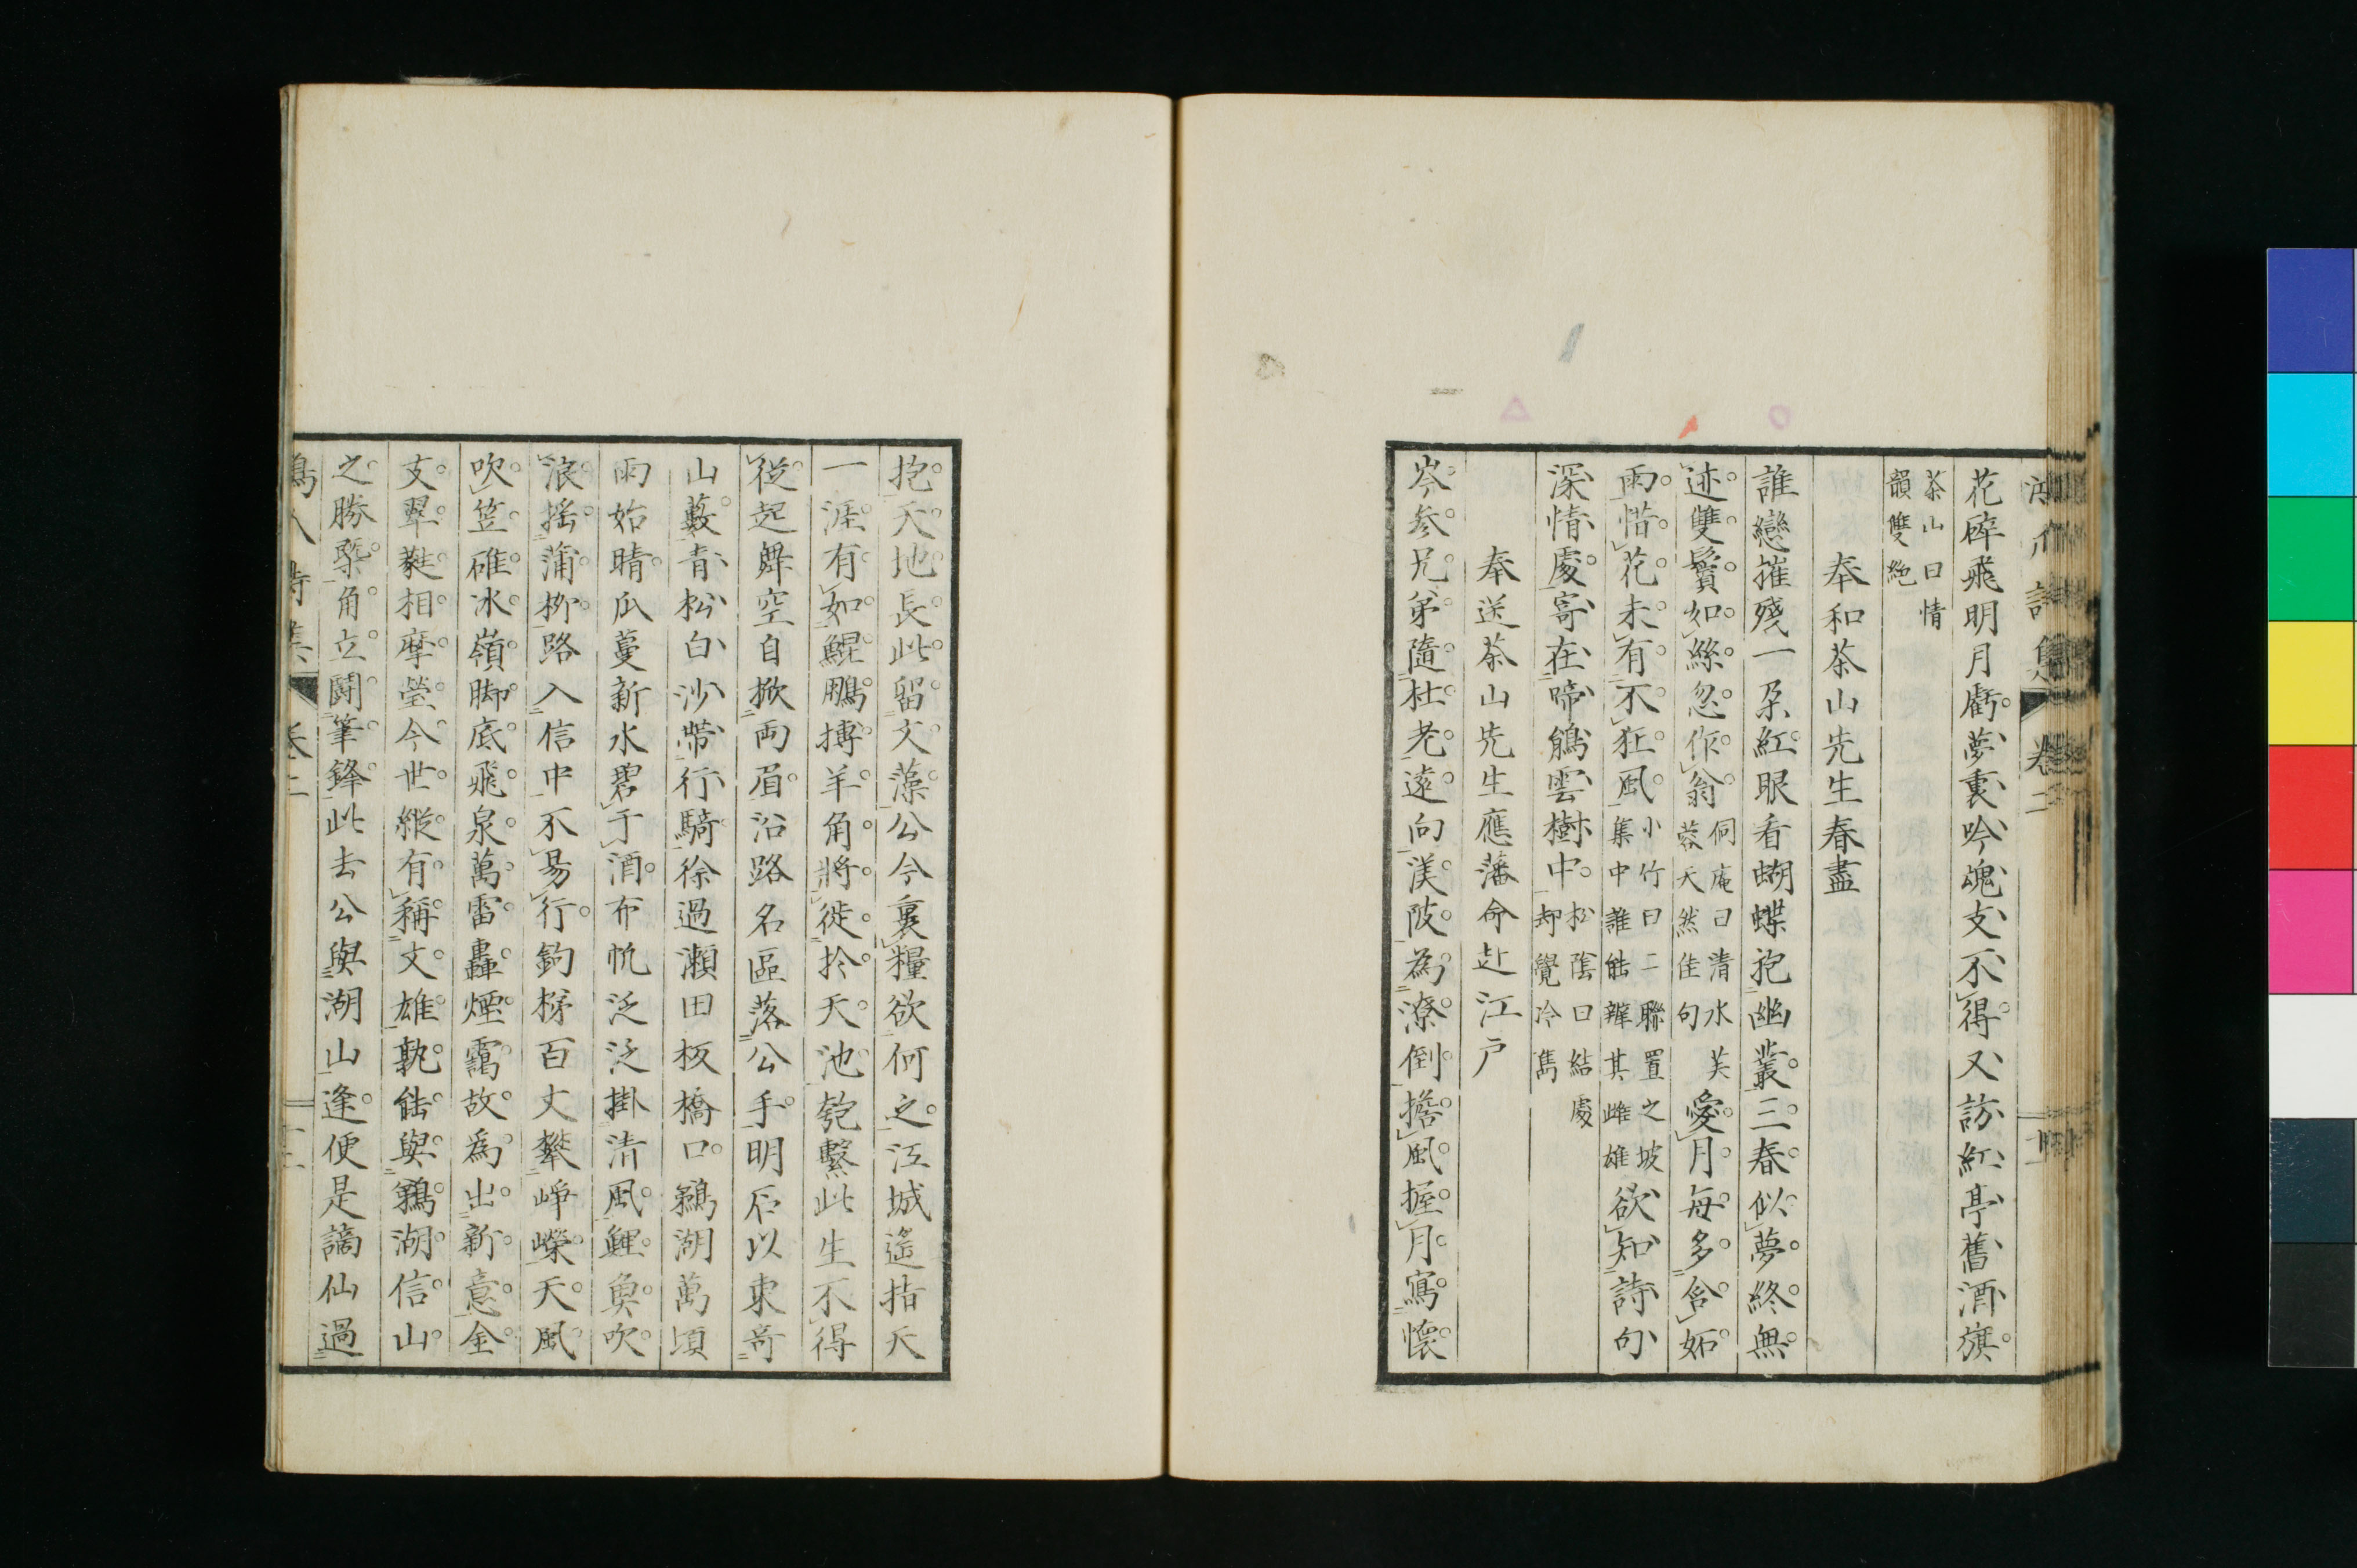 詩集 卷二
花碎飛明月虧夢裏吟魂支不得又訪紅亭舊酒旗
茶山曰情
韻雙絶
奉和茶山先生春盡
誰戀摧殘一朶紅眼看蝴蝶抱幽叢三春似夢終無
迹雙鬢如絲忽作翁
侗庵曰清水芙
蓉天然佳句
愛月每多含妬
雨惜花未有不狂風
小竹曰二聯置之坡
集中誰能辨其雌雄
欲知詩句
深情處寄在啼鵑雲樹中
松陰曰結處
却覺冷雋
奉送茶山先生應藩命赴江戶
岑参兄弟隨杜老遠向渼陂為潦倒擔風握月寫懷
抱天地長此留文藻公今裏糧欲何之江城遙指天
一涯有如鯤鵬搏羊角將徙於天池匏繫此生不得
從起舞空自掀両眉沿路名區落公手明石以東奇
山藪青松白沙帶行騎徐過瀨田板橋口鵜湖萬頃
雨始晴瓜蔓新水碧于酒布帆泛泛掛清風鯉魚吹
浪搖蒲柳路入信中不易行鉤梯百丈攀崢嶸天風
吹笠碓冰嶺脚底飛泉萬雷轟煙靄故為出新意金
支翠蕤相摩瑩今世縱有稱文雄孰能與鵜湖信山
之勝槩角立鬪筆鋒此去公與湖山逢便是謫仙過
詩集 卷二